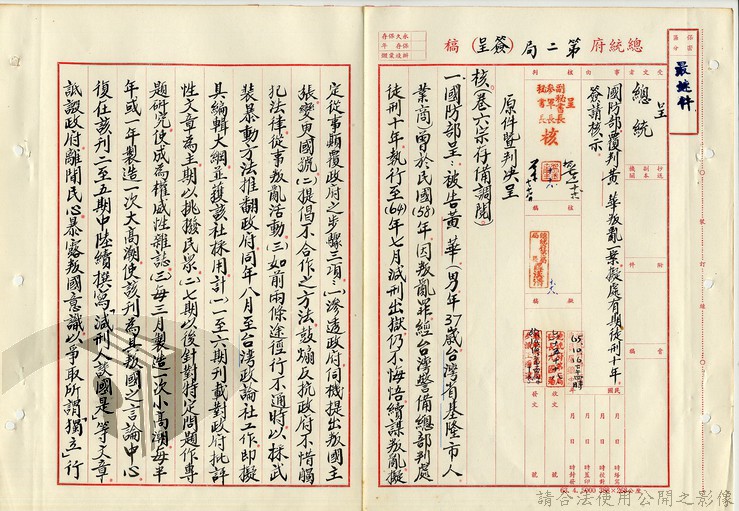 總統府第二局(簽呈)稿
保密區分
最速件
保存年限
永久保存
呈
受文者
總統
副本收受者
抄送
機關
事由
國防部覆判黃華叛亂一案擬處有期徒刑十年
簽請核示
擬辦
呈
副秘書長
參軍長
秘書長
核
原件暨判決呈
核。卷六宗存備調閱。
一國防部呈:被告黃華(男年37歲台灣省基隆市人
業商)曾於民國(58)年因叛亂罪經台灣警備總部判處
徒刑十年執行至(64)年七月減刑出獄仍不悔悟續謀叛亂擬
定從事顛覆政府之步驟三項:(一)滲透政府伺機提出叛國主
張變更國號(二)提倡不合作之方法鼓煽反抗政府不惜觸
犯法律從事叛亂活動(三)如前兩條途徑行不通時以採武
裝暴動方法推翻政府同年八月至台灣政論社工作即擬
具編輯大綱並獲該社採用計(一)一至六期刊載對政府批評
性文章為主期以挑撥民眾(二)七期以後針對特定問題作專
題研究使成為權威性雜誌(三)每三月製造一次小高潮每半
年或一年製造一次大高潮使該刊為其叛國之言論中心
復在該刊二至五期中陸續撰寫「減刑人談國是」等文章
詆譭政府離間民心暴露叛國意識以爭取所謂「獨立」行
裝訂線
65.10.16
63.4.5000 388×268公厘
請合法使用公開之影像